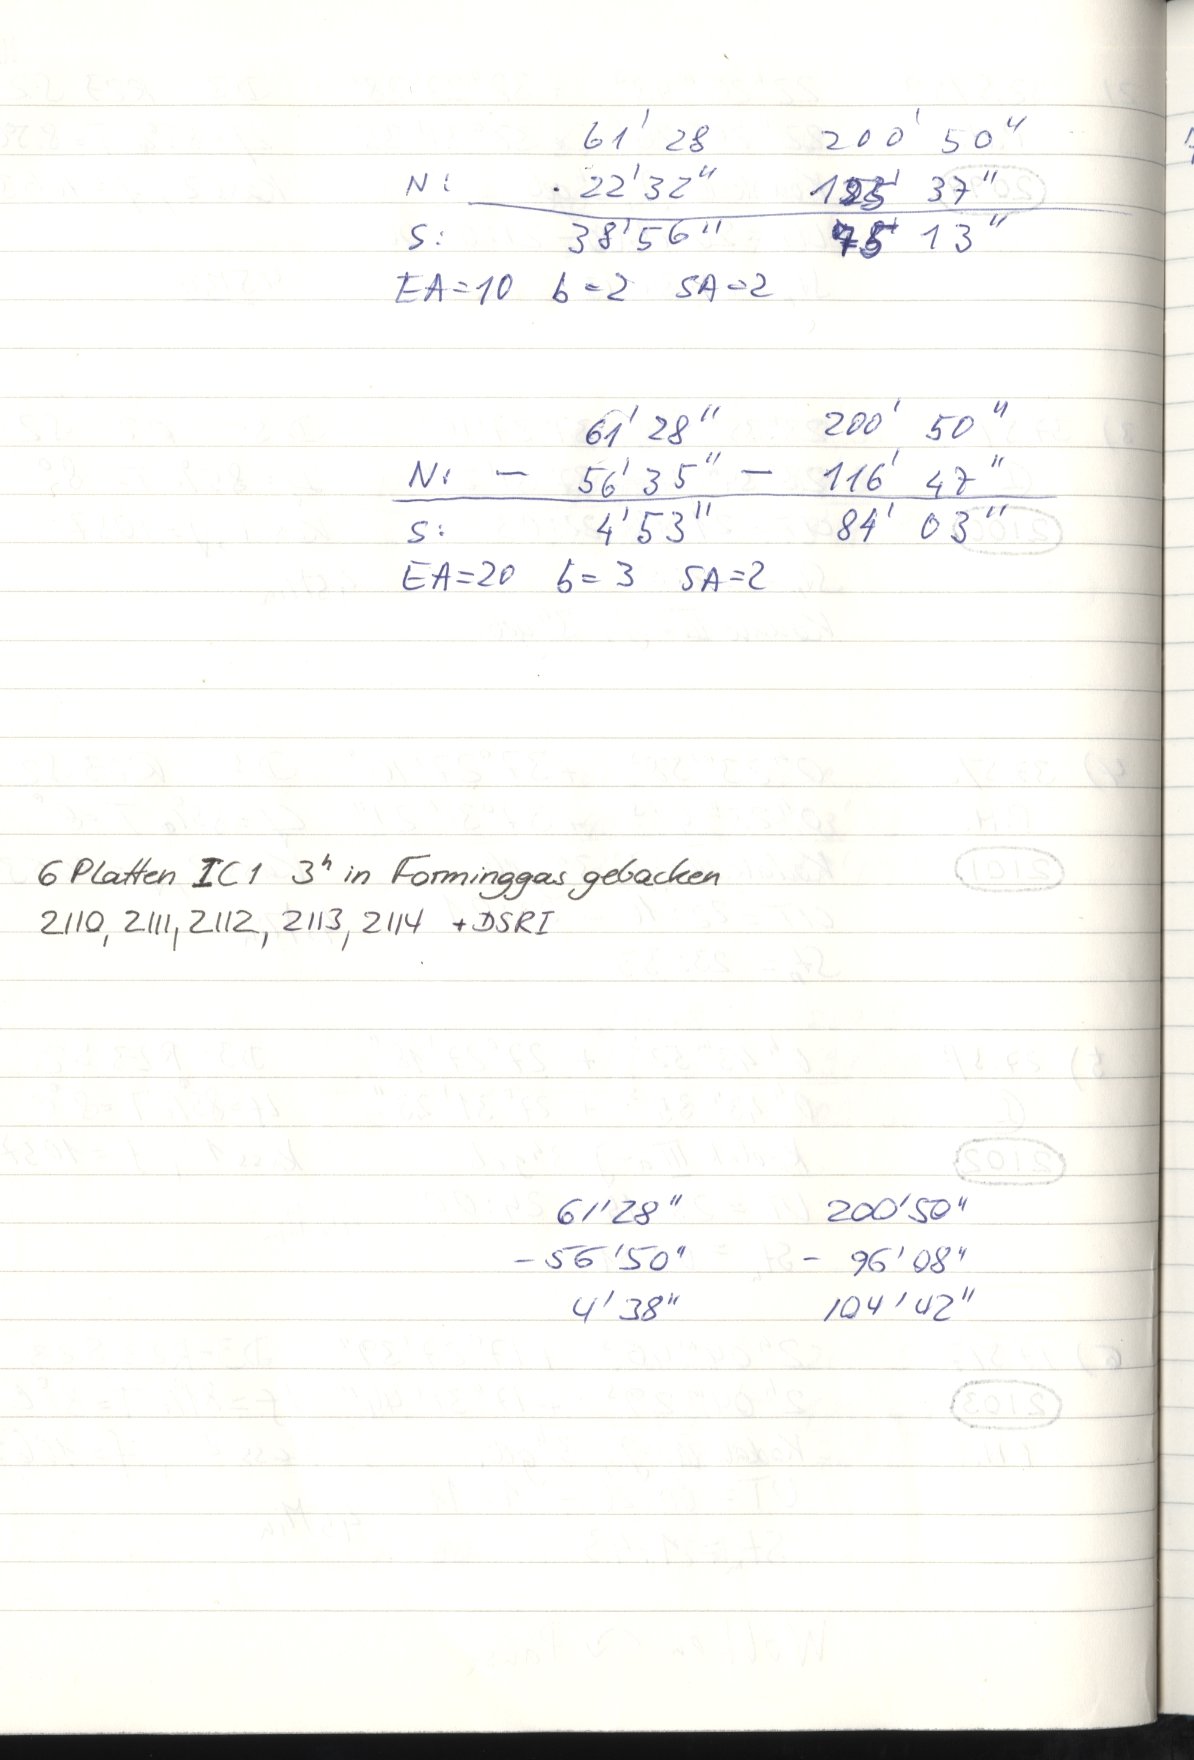 61' 28 200' 50"
N: 22'32" 125' 37"
S: 38'56" 75' 13"
EA=10 b=2 SA=2
61' 28" 200' 50"
N: - 56' 35" - 116' 47"
S: 4' 53" 84' 03"
EA=20 b=3 SA=2
6 Platten IC1 3h in Forminggas gebacken
2110, 2111, 2112, 2113, 2114 +DSRI
61'28" 200'50"
-56'50" - 96'08"
4'38" 104'42"